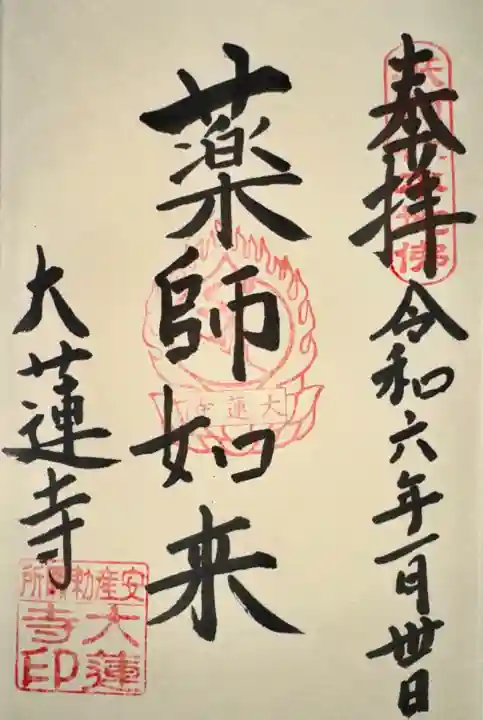 奉拝
令和六年一月丗日
薬師如来
大蓮寺
大蓮寺
安産勅願所
大蓮
寺印